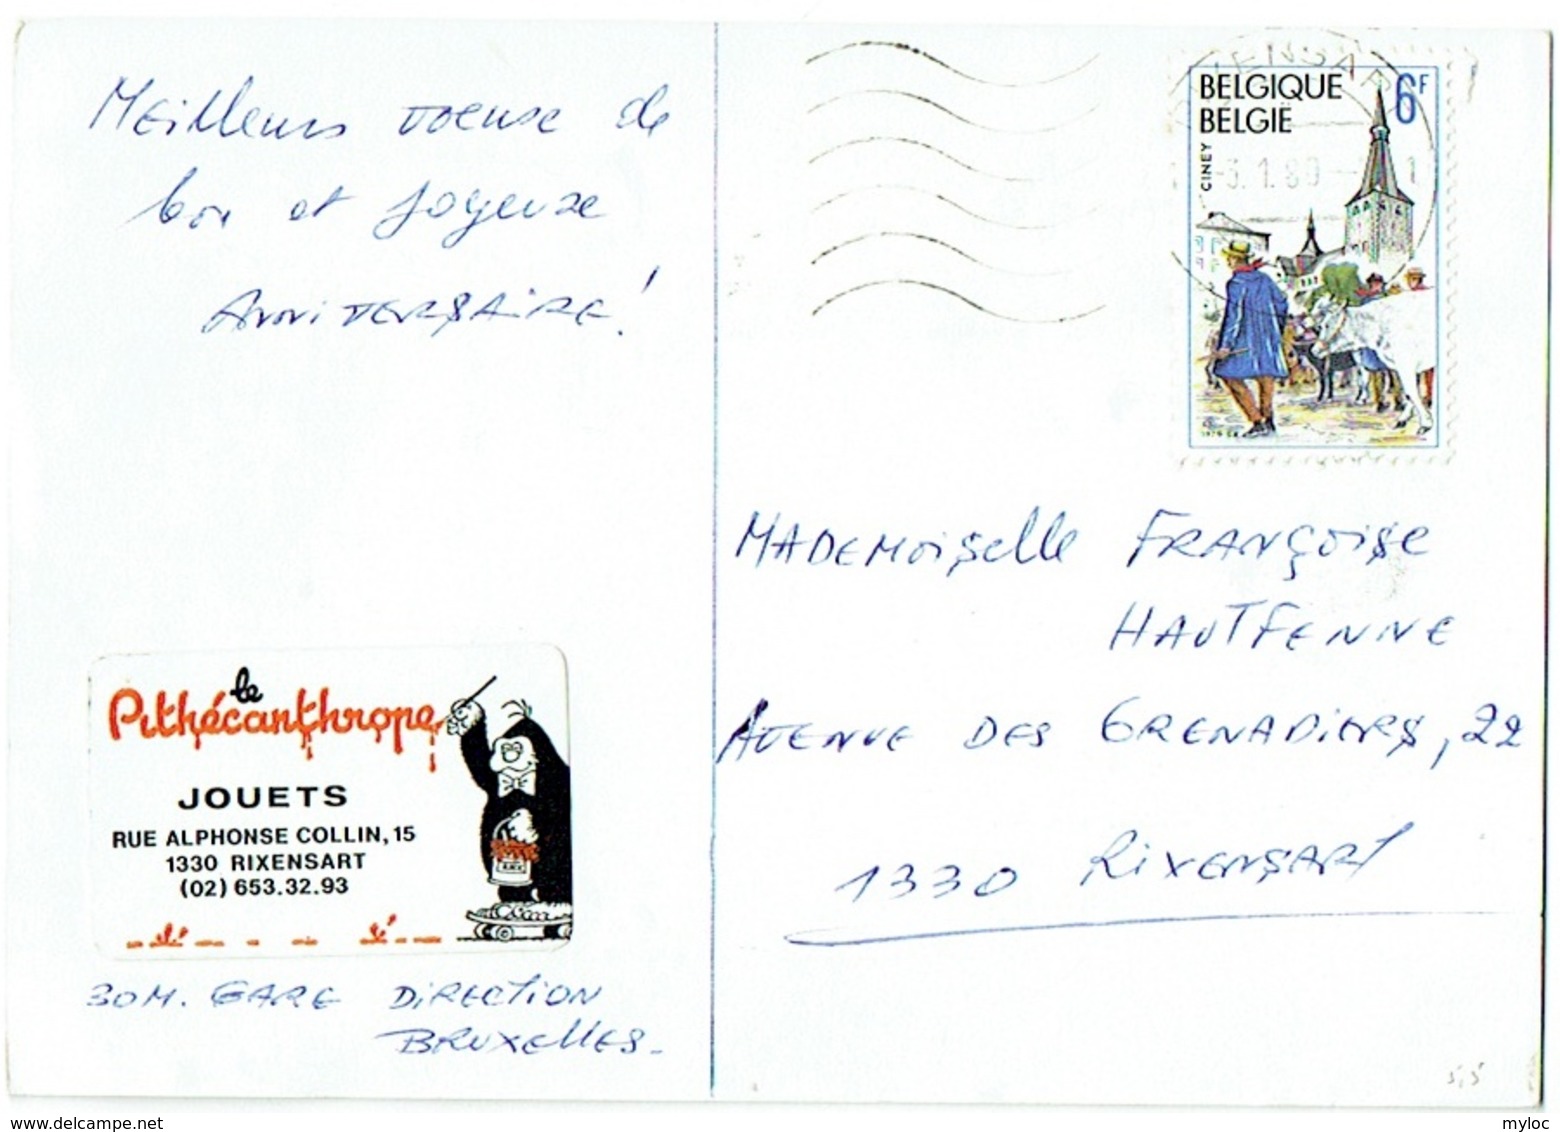 Meilleurs voeux de
bon et joyeuse
Anniversaire!
le
Pithécanthrope
JOUETS
RUE ALPHONSE COLLIN, 15
1330 RIXENSART
(02) 653.32.93
30M. GARE DIRECTION
BRUXELLES.
BELGIQUE 6F
BELGIË
CINEY
RIXENSART
-3.1.80-
1
MADEMOISELLE FRANÇOISE
HAUTFENNE
AVENUE DES GRENADIERS, 22
1330 RIXENSART
5,5
myloc